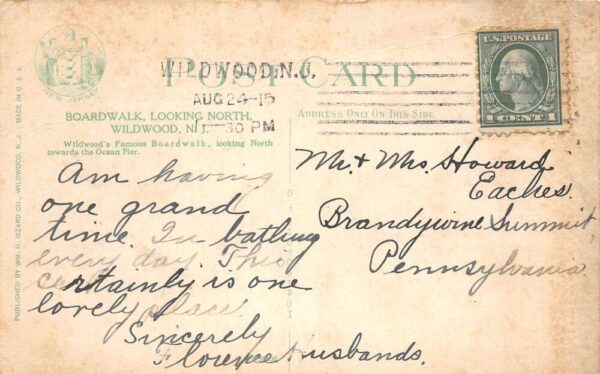 POST CARD
NEW JERSEY
WILDWOOD, N.J.
AUG 24-15
-30 PM
U.S. POSTAGE
1 CENT 1
BOARDWALK, LOOKING NORTH,
WILDWOOD, N.J.
Wildwood's Famous Boardwalk, looking North
towards the Ocean Pier.
ADDRESS ONLY ON THIS SIDE
PUBLISHED BY WM. H. IZZARD CO., WILDWOOD, N. J. MADE IN U. S. A.
Am having
one grand
time. In bathing
every day. This
certainly is one
lovely place.
Sincerely
Florence Husbands.
Mr. & Mrs. Howard
Eaches.
Brandywine Summit,
Pennsylvania.